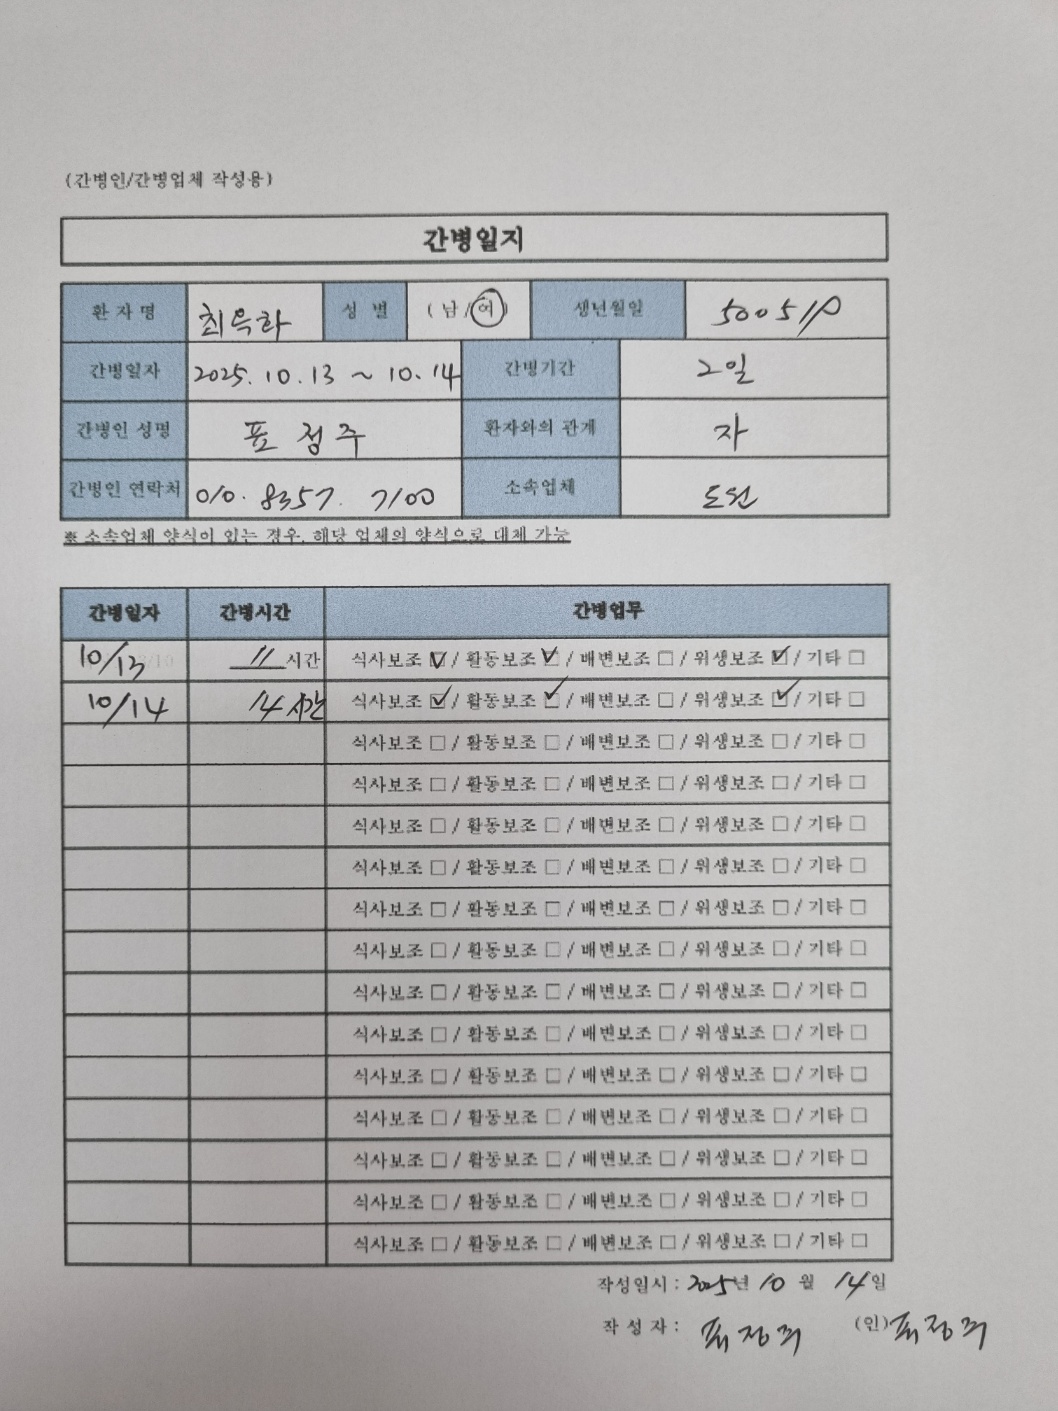 (간병인/간병업체 작성용)
간병일지
환 자 명 최옥화 성 별 ( 남 / 여 ) 생년월일
간병일자 2025. 10. 13 ~ 10. 14 간병기간 2일
간병인 성명 표 정 주 환자와의 관계 자
간병인 연락처 010. 8357. 7100 소속업체 도원
※ 소속업체 양식이 있는 경우, 해당 업체의 양식으로 대체 가능
간병일자 간병시간 간병업무
10/13 11 시간 식사보조 ☑ / 활동보조 ☑ / 배변보조 □ / 위생보조 ☑ / 기타 □
10/14 14 시간 식사보조 ☑ / 활동보조 ☑ / 배변보조 □ / 위생보조 ☑ / 기타 □
식사보조 □ / 활동보조 □ / 배변보조 □ / 위생보조 □ / 기타 □
식사보조 □ / 활동보조 □ / 배변보조 □ / 위생보조 □ / 기타 □
식사보조 □ / 활동보조 □ / 배변보조 □ / 위생보조 □ / 기타 □
식사보조 □ / 활동보조 □ / 배변보조 □ / 위생보조 □ / 기타 □
식사보조 □ / 활동보조 □ / 배변보조 □ / 위생보조 □ / 기타 □
식사보조 □ / 활동보조 □ / 배변보조 □ / 위생보조 □ / 기타 □
식사보조 □ / 활동보조 □ / 배변보조 □ / 위생보조 □ / 기타 □
식사보조 □ / 활동보조 □ / 배변보조 □ / 위생보조 □ / 기타 □
식사보조 □ / 활동보조 □ / 배변보조 □ / 위생보조 □ / 기타 □
식사보조 □ / 활동보조 □ / 배변보조 □ / 위생보조 □ / 기타 □
식사보조 □ / 활동보조 □ / 배변보조 □ / 위생보조 □ / 기타 □
식사보조 □ / 활동보조 □ / 배변보조 □ / 위생보조 □ / 기타 □
식사보조 □ / 활동보조 □ / 배변보조 □ / 위생보조 □ / 기타 □
작성일시 : 2025년 10 월 14일
작 성 자 : 표정주 (인) 표정주